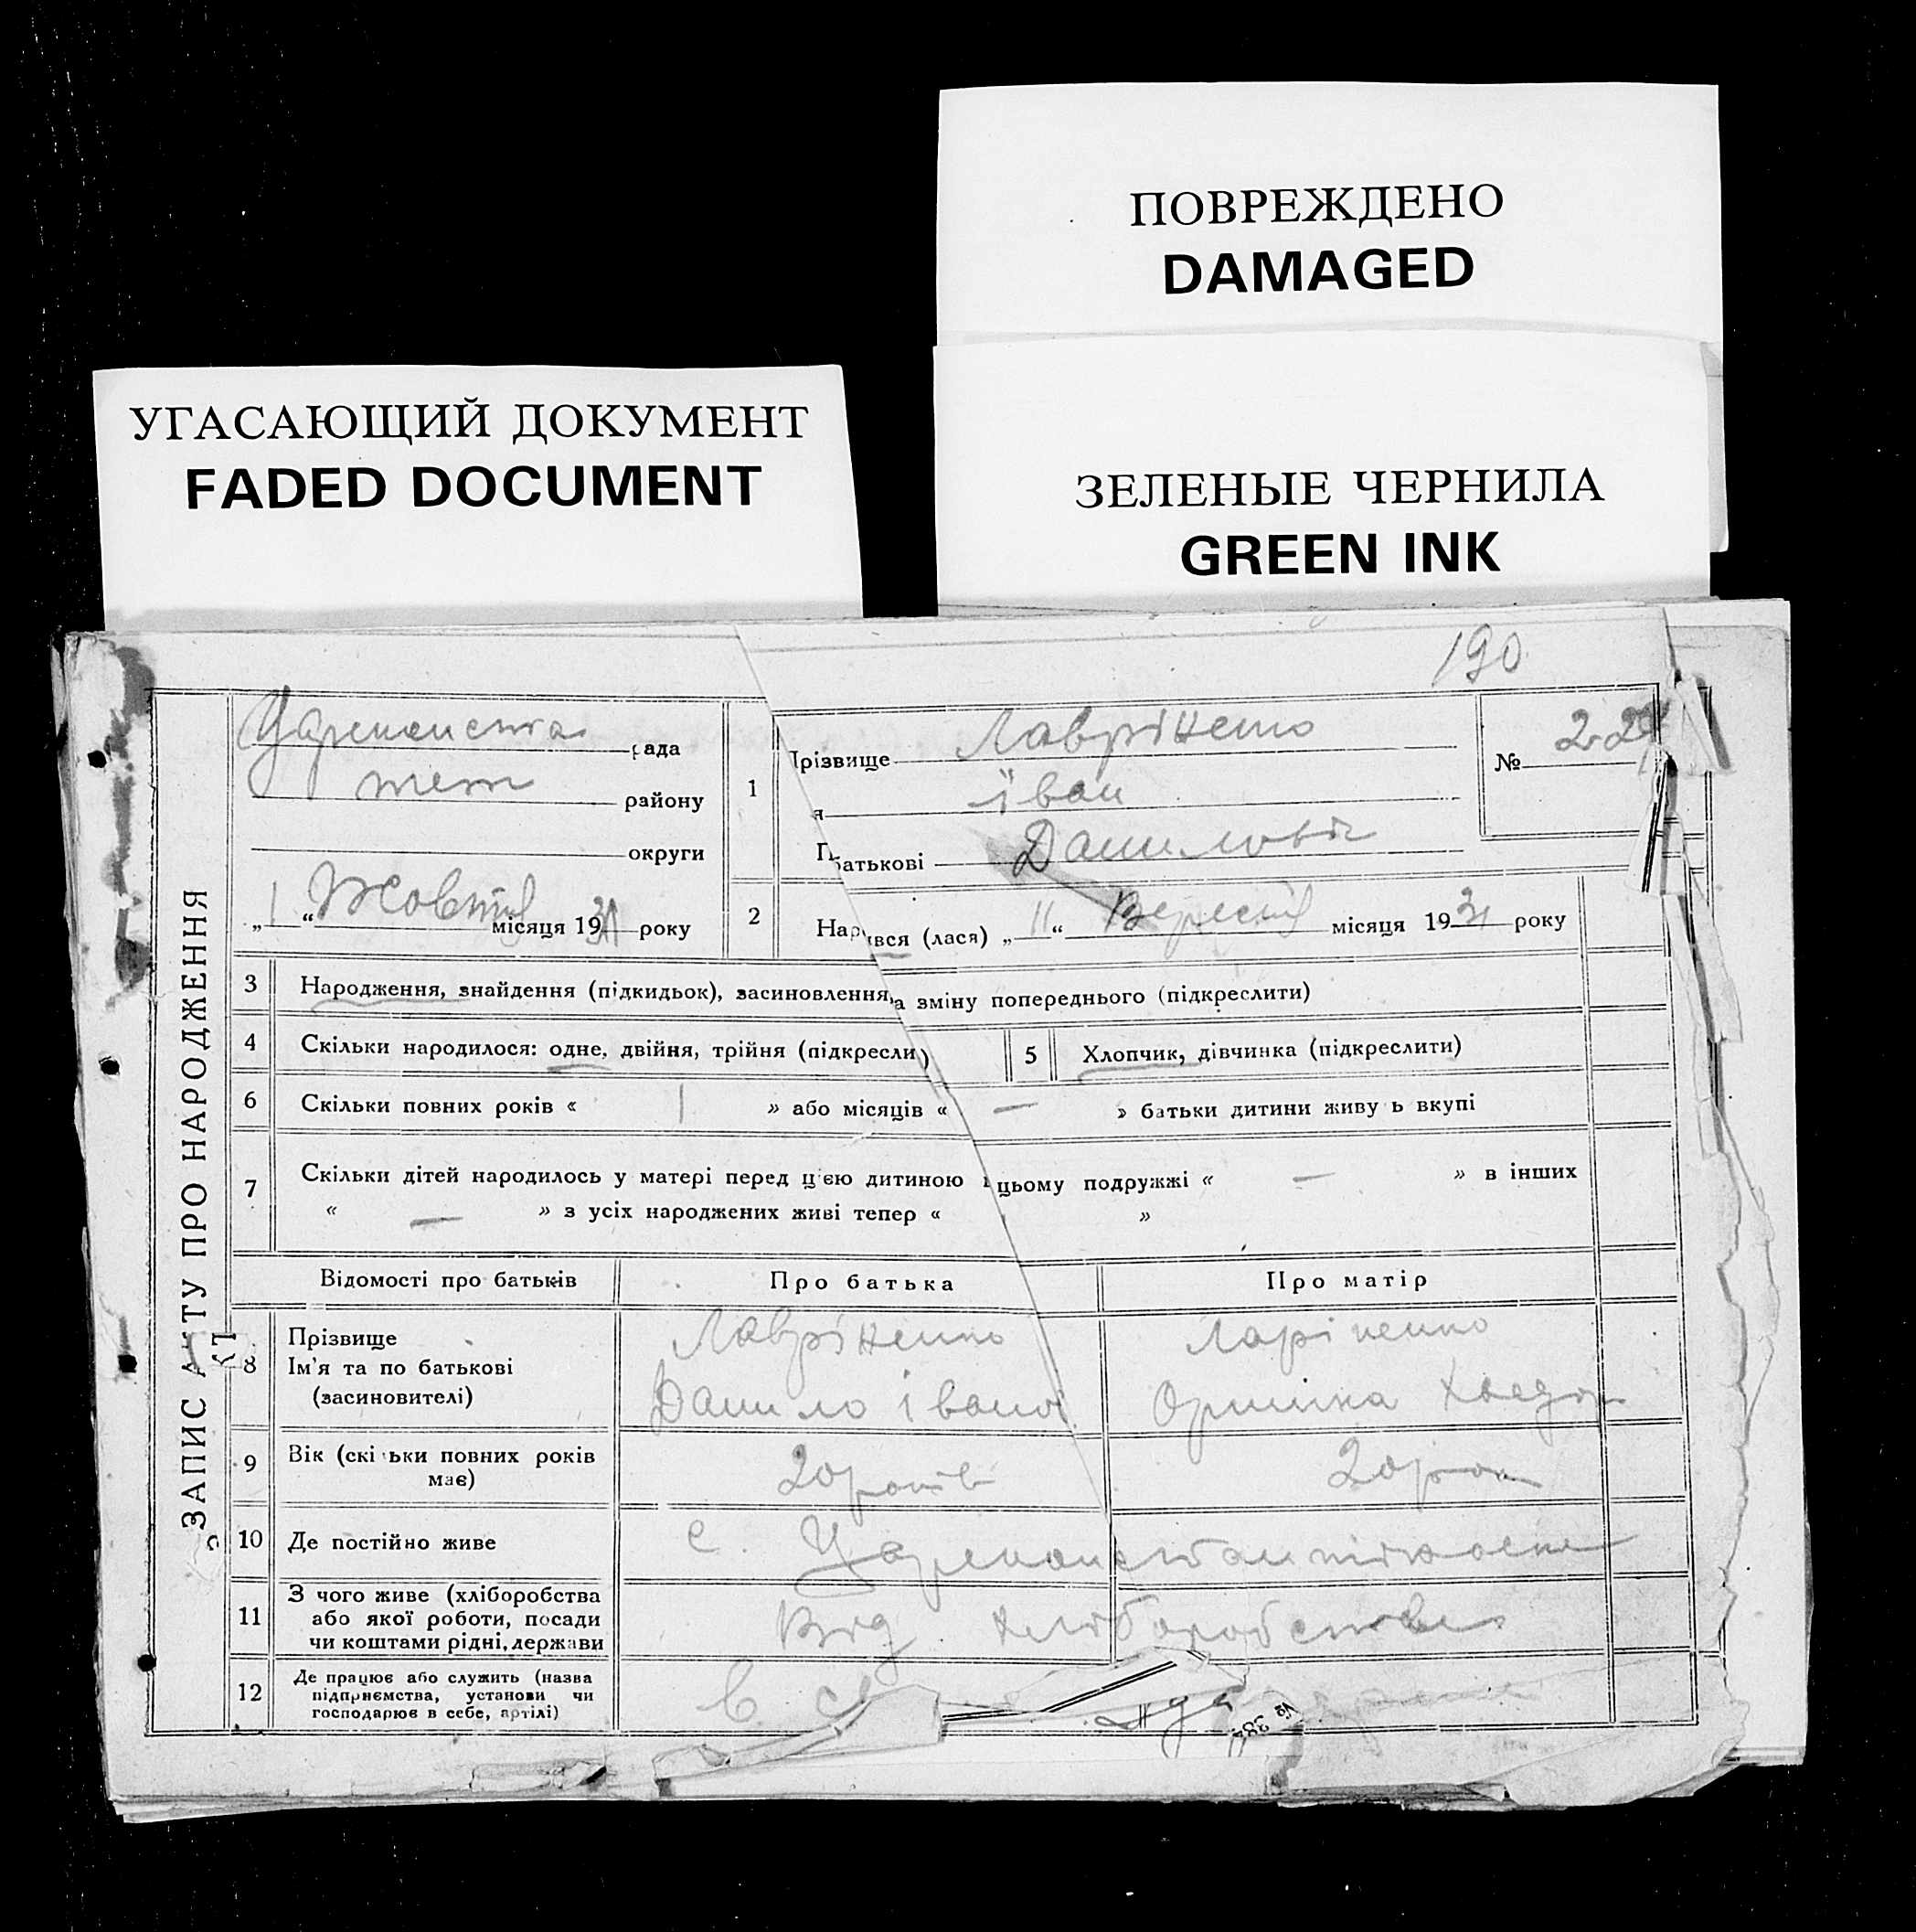 ПОВРЕЖДЕНО
DAMAGED
УГАСАЮЩИЙ ДОКУМЕНТ
FADED DOCUMENT
ЗЕЛЕНЫЕ ЧЕРНИЛА
GREEN INK
190
ЗАПИС АКТУ ПРО НАРОДЖЕННЯ
рада
району
округи
„1“ місяця 1931 року
1
різвище Лавріненко
я іван
П батькові Данилович
№
2
Нар ився (лася) „11“ місяця 1931 року
3 Народження, знайдення (підкидьок), засиновлення, а зміну попереднього (підкреслити)
4 Скільки народилося: одне, двійня, трійня (підкресли )
5 Хлопчик, дівчинка (підкреслити)
6 Скільки повних років « 1 » або місяців « — » батьки дитини живу ь вкупі
7 Скільки дітей народилось у матері перед цією дитиною цьому подружжі « — » в інших
« — » з усіх народжених живі тепер « »
Відомості про батьків Про батька Про матір
8 Прізвище Лавріненко
Ім'я та по батькові Данило іванов
(засиновителі)
9 Вік (скі ьки повних років має) 20 років 20 рок
10 Де постійно живе с.
11 З чого живе (хліборобства або якої роботи, посади чи коштами рідні, держави Від хліборобства
12 Де працює або служить (назва підприємства, установи чи господарює в себе, артілі) в